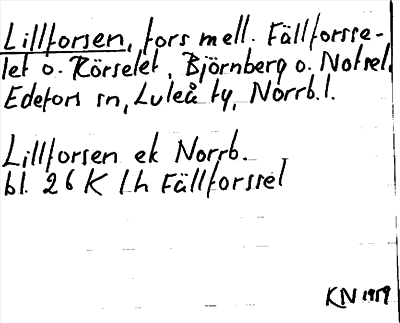 Lillforsen, fors mell. Fällforsse-
let o. Rörselet, Björnberg o. Notsel,
Edefors sn, Luleå ty, Norrb.l.
Lillforsen ek Norrb.
bl. 26 K 1h Fällforssel
KN 1959